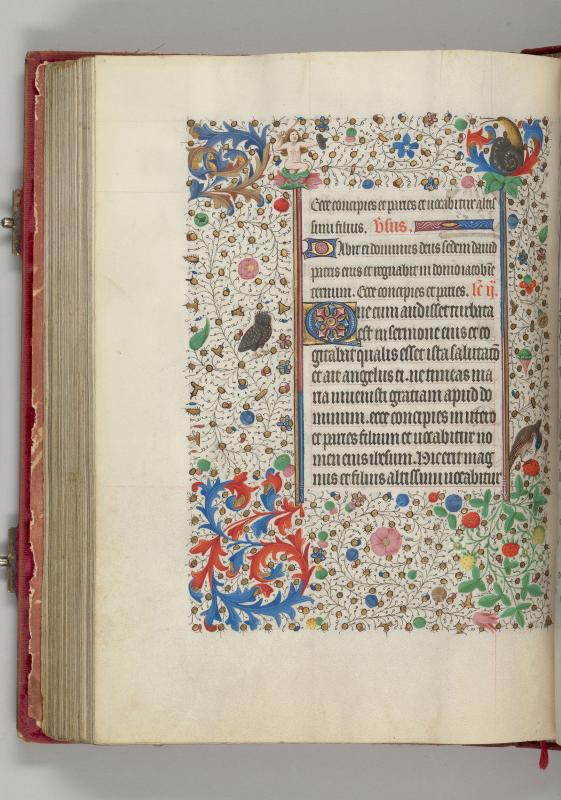 Ecce concipies et paries et uocabitur altis
simi filius. v̄sus.
Dabit ei dominus deus sedem dauid
patris eius et regnabit in domo iacob in
eternum. Ecce concipies et paries. lc̄ ij.
Que cum audisset turbata
est in sermone eius et co
gitabat qualis esset ista salutacō
et ait angelus ei. ne timeas ma
ria inuenisti gratiam apud do
minum. ecce concipies in utero
et paries filium et uocabitur no
men eius ihesum. Hic erit mag
nus et filius altissimi uocabitur